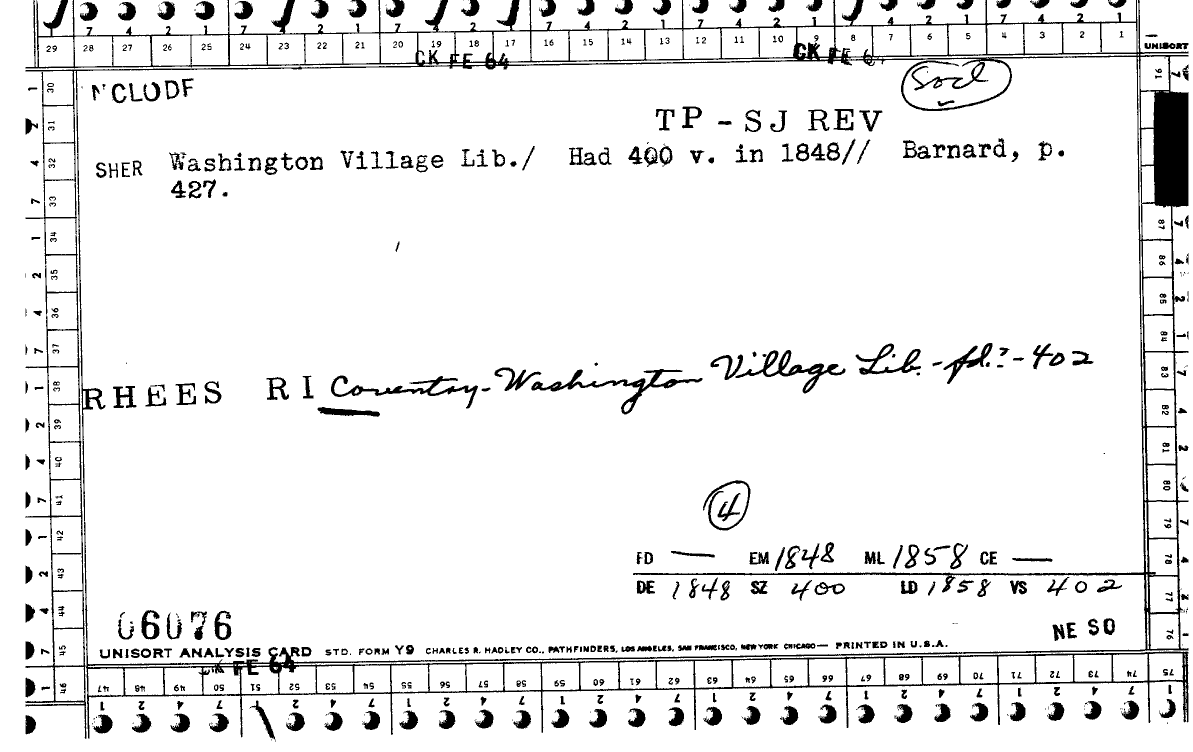 7 4 2 1 7 4 2 1 7 4 2 1 7 4 2 1 7 4 2 1
29 28 27 26 25 24 23 22 21 20 19 18 17 16 15 14 13 12 11 10 9 8 7 6 5 4 3 2 1 UNISORT
CK FE 64 CK FE 64
CLODF Socl
TP - SJ REV
SHER Washington Village Lib./ Had 400 v. in 1848// Barnard, p.
427.
RHEES RI Coventry - Washington Village Lib. - fd.? - 402
4
FD — EM 1848 ML 1858 CE —
DE 1848 SZ 400 LD 1858 VS 402
06076
NE SO
UNISORT ANALYSIS CARD STD. FORM Y9 CHARLES R. HADLEY CO., PATHFINDERS, LOS ANGELES, SAN FRANCISCO, NEW YORK CHICAGO — PRINTED IN U.S.A.
FE 64
46 47 48 49 50 51 52 53 54 55 56 57 58 59 60 61 62 63 64 65 66 67 68 69 70 71 72 73 74 75
30 31 32 33 34 35 36 37 38 39 40 41 42 43 44 45
91 87 86 85 84 83 82 81 80 79 78 77 76